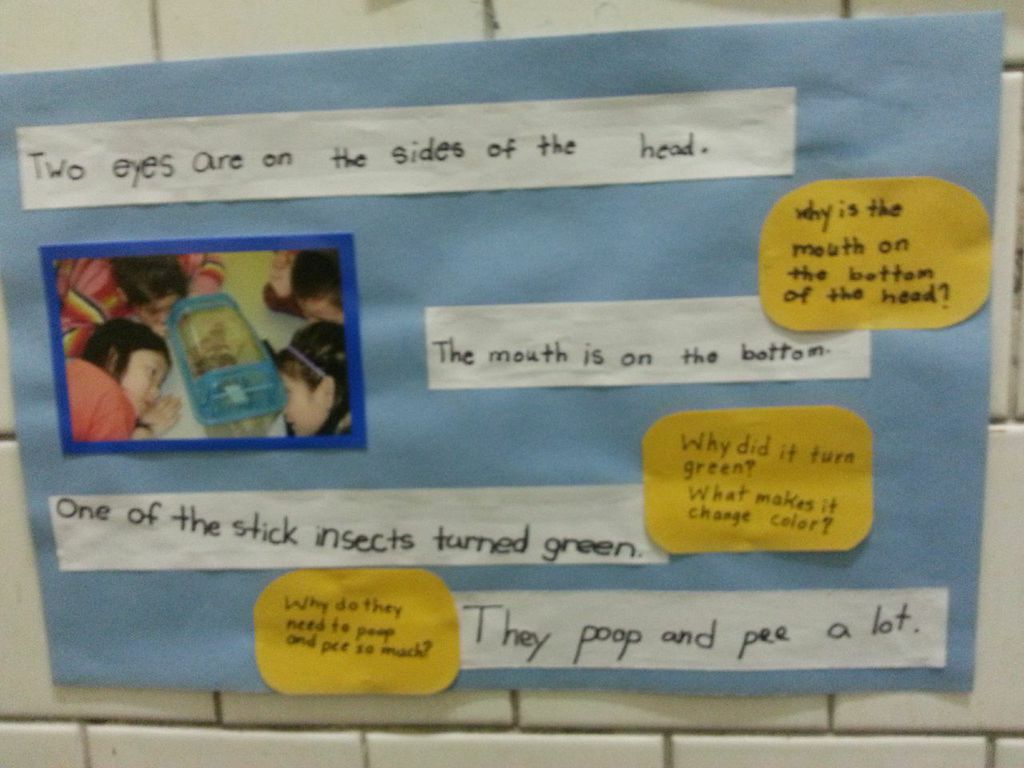 Two eyes are on the sides of the head.
why is the
mouth on
the bottom
of the head?
The mouth is on the bottom.
Why did it turn
green?
What makes it
change color?
One of the stick insects turned green.
Why do they
need to poop
and pee so much?
They poop and pee a lot.